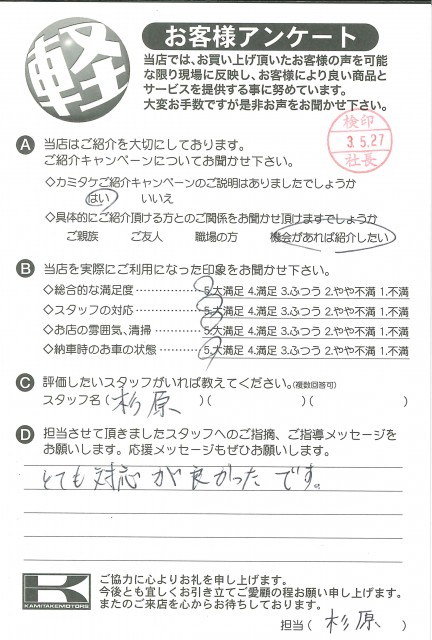 軽
お客様アンケート
当店では、お買い上げ頂いたお客様の声を可能
な限り現場に反映し、お客様により良い商品と
サービスを提供する事に努めています。
大変お手数ですが是非お声をお聞かせ下さい。
検印
3.5.27
社長
A 当店はご紹介を大切にしております。
ご紹介キャンペーンについてお聞かせ下さい。
◇カミタケご紹介キャンペーンのご説明はありましたでしょうか
はい いいえ
◇具体的にご紹介頂ける方とのご関係をお聞かせ頂けますでしょうか
ご親族 ご友人 職場の方 機会があれば紹介したい
B 当店を実際にご利用になった印象をお聞かせ下さい。
◇総合的な満足度………………5.大満足 4.満足 3.ふつう 2.やや不満 1.不満
◇スタッフの対応………………5.大満足 4.満足 3.ふつう 2.やや不満 1.不満
◇お店の雰囲気、清掃…………5.大満足 4.満足 3.ふつう 2.やや不満 1.不満
◇納車時のお車の状態…………5.大満足 4.満足 3.ふつう 2.やや不満 1.不満
C 評価したいスタッフがいれば教えてください。(複数回答可)
スタッフ名(杉原)( )( )
D 担当させて頂きましたスタッフへのご指摘、ご指導メッセージを
お願いします。応援メッセージもぜひお願いします。
とても対応が良かったです。
K
KAMITAKEMOTORS
ご協力に心よりお礼を申し上げます。
今後とも宜しくお引き立てご愛顧の程お願い申し上げます。
またのご来店を心からお待ちしております。
担当(杉原)